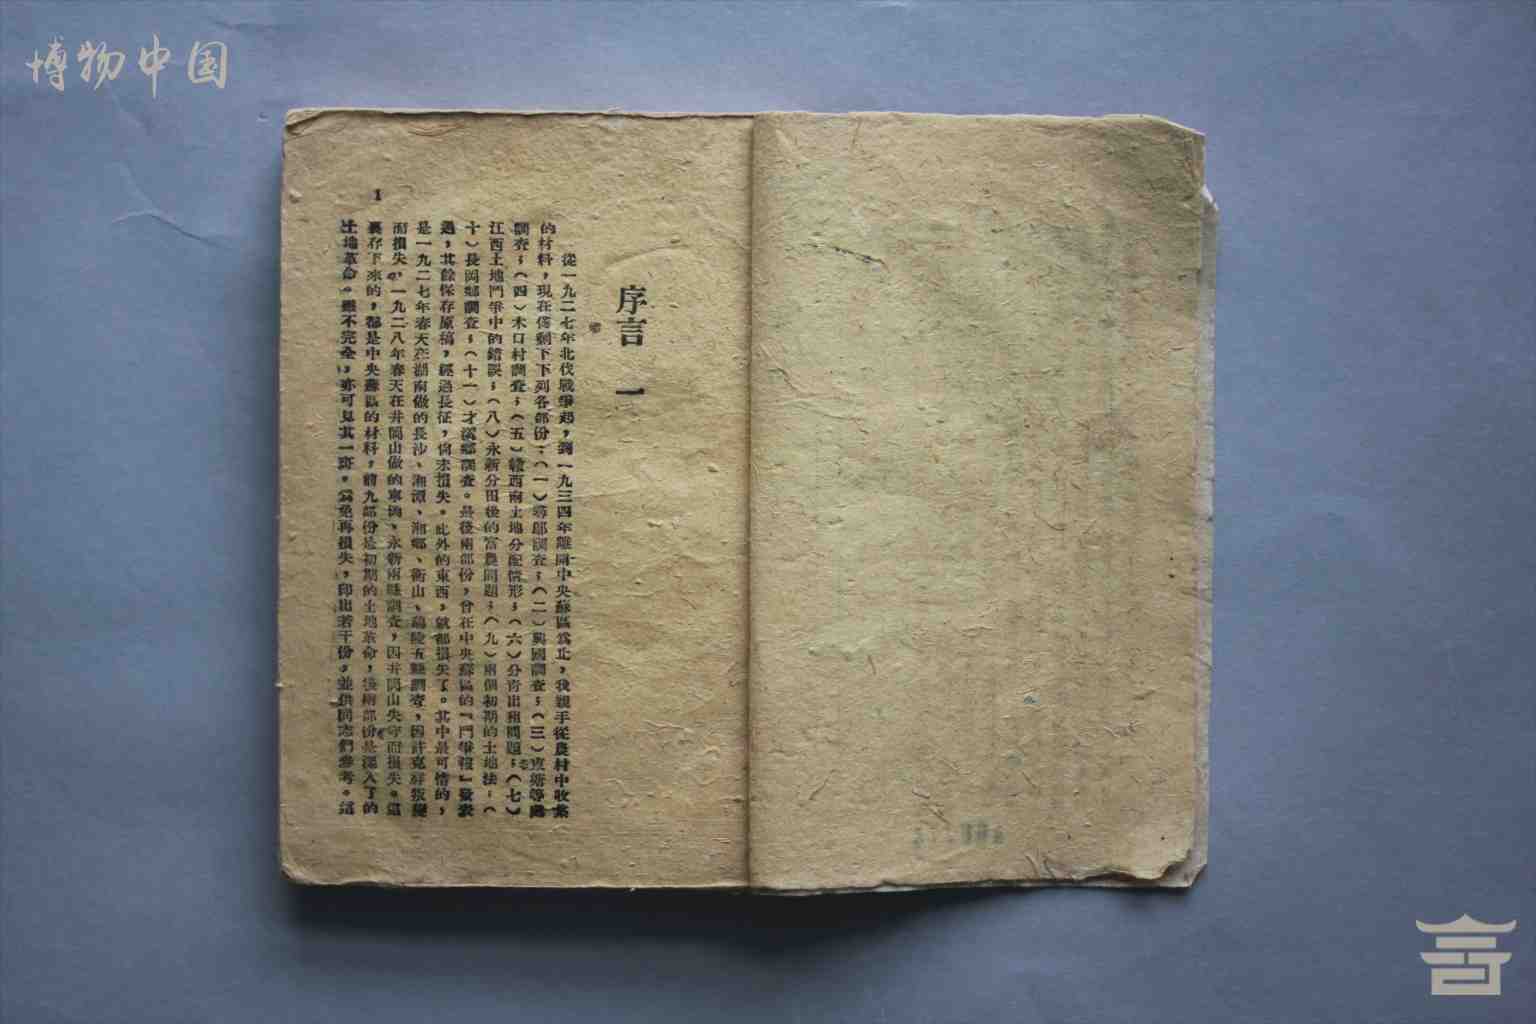 博物中国
序言 一
從一九二七年北伐戰爭起，到一九三四年離開中央蘇區爲止，我親手從農村中收集
的材料，現在僅剩下下列各部份：（一）尋鄔調查；（二）興國調查；（三）東塘等處
調查；（四）木口村調查；（五）贛西南土地分配情形；（六）分青出租問題；（七）
江西土地鬥爭中的錯誤；（八）永新分田後的富農問題；（九）兩個初期的土地法；（
十）長岡鄉調查；（十一）才溪鄉調查。最後兩部份，曾在中央蘇區的『鬥爭報』發表
過，其餘保存原稿，經過長征，尙未損失。此外的東西，就都損失了。其中最可惜的，
是一九二七年春天在湖南做的長沙、湘潭、湘鄉、衡山、醴陵五縣調查，因許克祥叛變
而損失，一九二八年春天在井岡山做的寧岡、永新兩縣調查，因井岡山失守而損失。這
裏存下來的，都是中央蘇區的材料，前九部份是初期的土地革命，後兩部份是深入了的
土地革命。雖不完全，亦可見其一斑。爲免再損失，印出若干份，並供同志們參考。這
1